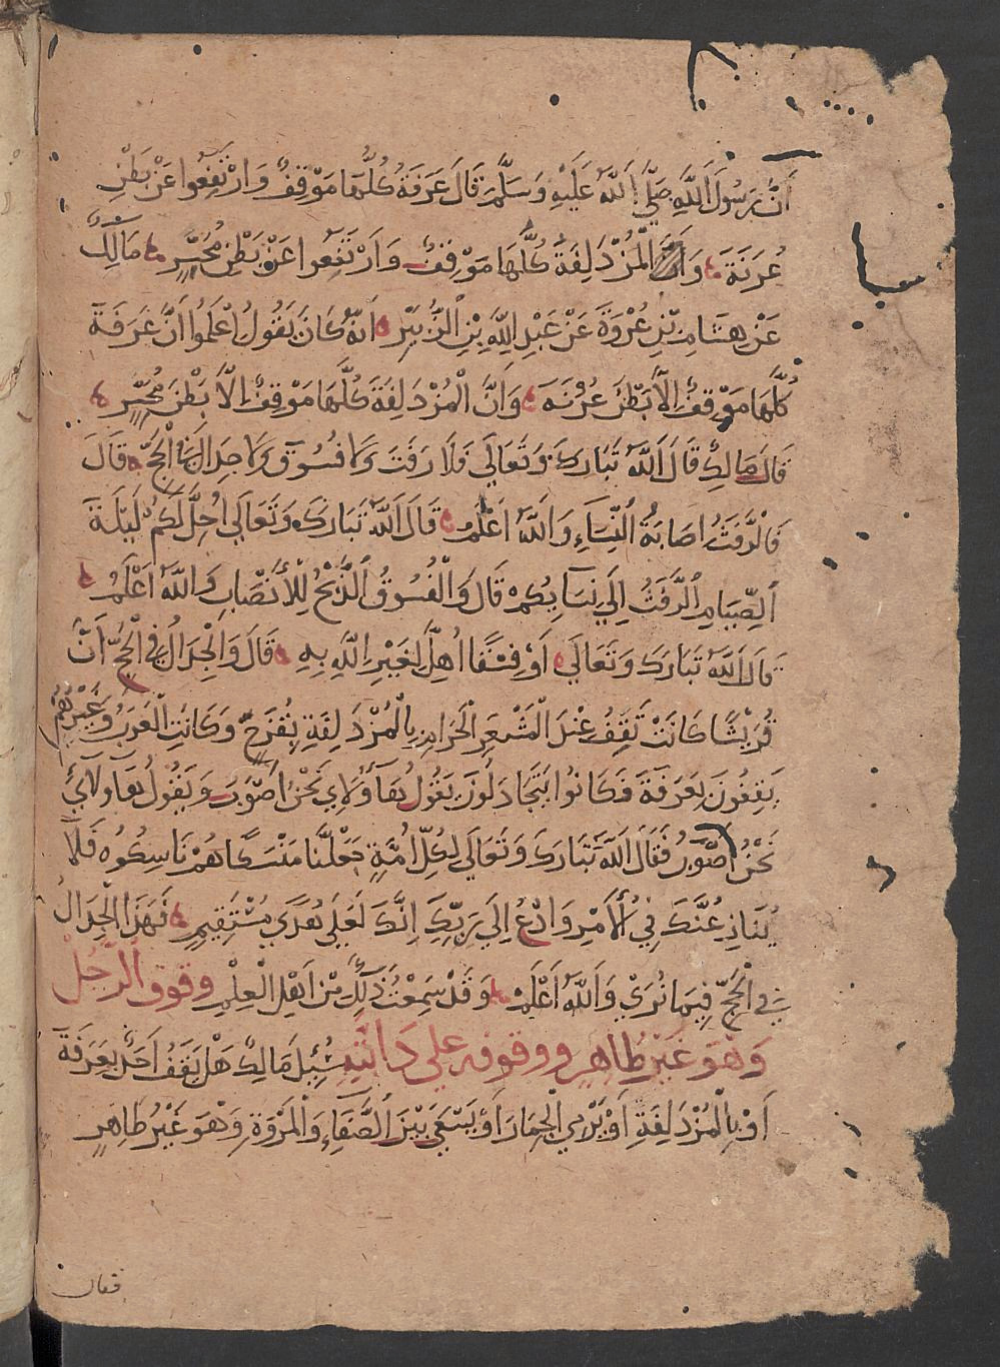 أَنَّ رَسُولَ اللَّهِ صَلَّى اللَّهُ عَلَيْهِ وَسَلَّمَ قَالَ عَرَفَةُ كُلُّهَا مَوْقِفٌ وَارْتَفِعُوا عَنْ بَطْنِ
عُرَنَةَ وَالْمُزْدَلِفَةُ كُلُّهَا مَوْقِفٌ وَارْتَفِعُوا عَنْ بَطْنِ مُحَسِّرٍ مَالِكٌ
عَنْ هِشَامِ بْنِ عُرْوَةَ عَنْ عَبْدِ اللَّهِ بْنِ الزُّبَيْرِ أَنَّهُ كَانَ يَقُولُ اعْلَمُوا أَنَّ عَرَفَةَ
كُلَّهَا مَوْقِفٌ إِلَّا بَطْنَ عُرَنَةَ وَأَنَّ الْمُزْدَلِفَةَ كُلَّهَا مَوْقِفٌ إِلَّا بَطْنَ مُحَسِّرٍ
قَالَ مَالِكٌ قَالَ اللَّهُ تَبَارَكَ وَتَعَالَى فَلَا رَفَثَ وَلَا فُسُوقَ وَلَا جِدَالَ فِي الْحَجِّ قَالَ
فَالرَّفَثُ إِصَابَةُ النِّسَاءِ وَاللَّهُ أَعْلَمُ قَالَ اللَّهُ تَبَارَكَ وَتَعَالَى أُحِلَّ لَكُمْ لَيْلَةَ
الصِّيَامِ الرَّفَثُ إِلَى نِسَايِكُمْ قَالَ وَالْفُسُوقُ الذَّبْحُ لِلْأَنْصَابِ وَاللَّهُ أَعْلَمُ
قَالَ اللَّهُ تَبَارَكَ وَتَعَالَى أَوْ فِسْقًا أُهِلَّ لِغَيْرِ اللَّهِ بِهِ قَالَ وَالْجِدَالُ فِي الْحَجِّ أَنَّ
قُرَيْشًا كَانَتْ تَقِفُ عِنْدَ الْمَشْعَرِ الْحَرَامِ بِالْمُزْدَلِفَةِ بِقُزَحَ وَكَانَتِ الْعَرَبُ وَغَيْرُهُمْ
يَقِفُونَ بِعَرَفَةَ فَكَانُوا يَتَجَادَلُونَ يَقُولُ هَؤُلَاءِ نَحْنُ أَصْوَبُ وَيَقُولُ هَاوُلَاءِ
نَحْنُ أَصْوَبُ فَقَالَ اللَّهُ تَبَارَكَ وَتَعَالَى لِكُلِّ أُمَّةٍ جَعَلْنَا مَنْسَكًا هُمْ نَاسِكُوهُ فَلَا
يُنَازِعُنَّكَ فِي الْأَمْرِ وَادْعُ إِلَى رَبِّكَ إِنَّكَ لَعَلَى هُدًى مُسْتَقِيمٍ فَهَذَا الْجِدَالُ
فِي الْحَجِّ فِيمَا نُرَى وَاللَّهُ أَعْلَمُ وَقَدْ سَمِعْتُ ذَلِكَ مِنْ أَهْلِ الْعِلْمِ وقوف الرَّجُل
وَهُوَ غَيْرُ طَاهِرٍ ووقوفه على دَابَّتِهِ سُئِلَ مَالِكٌ هَلْ يَقِفُ أَحَدٌ بِعَرَفَةَ
أَوْ بِالْمُزْدَلِفَةِ أَوْ يَرْمِي الْجِمَارَ أَوْ يَسْعَى بَيْنَ الصَّفَاءِ وَالْمَرْوَةِ وَهُوَ غَيْرُ طَاهِرٍ
فقال